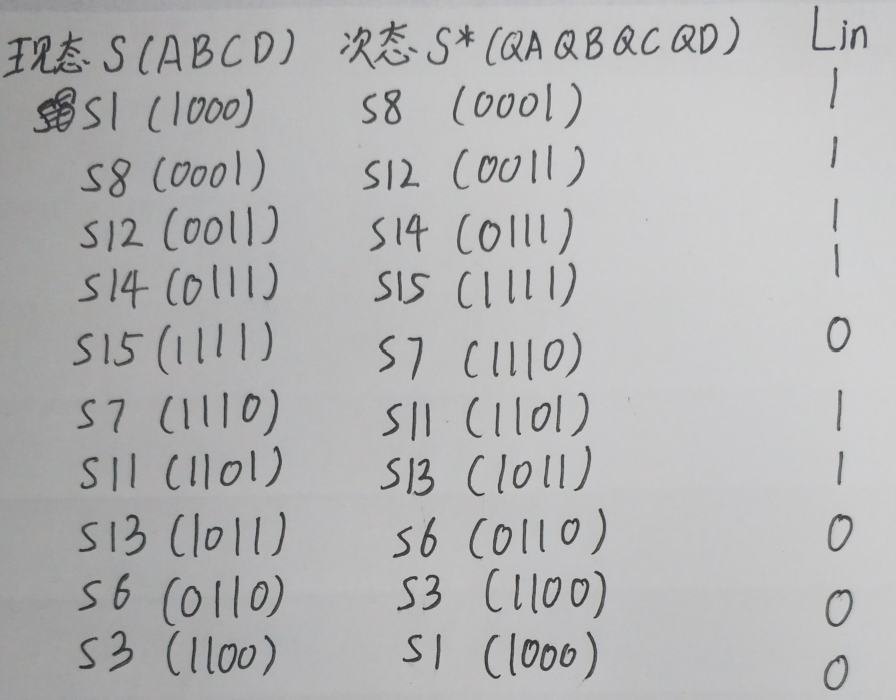 现态 S(ABCD) 次态 S*(QA QB QC QD) Lin
S1 (1000) S8 (0001) 1
S8 (0001) S12 (0011) 1
S12 (0011) S14 (0111) 1
S14 (0111) S15 (1111) 1
S15 (1111) S7 (1110) 0
S7 (1110) S11 (1101) 1
S11 (1101) S13 (1011) 1
S13 (1011) S6 (0110) 0
S6 (0110) S3 (1100) 0
S3 (1100) S1 (1000) 0